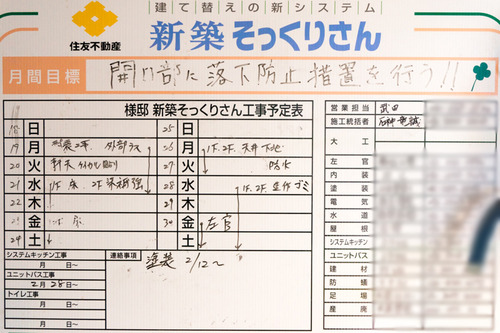 建て替えの新システム
住友不動産
新築そっくりさん
月間目標
開口部に落下防止措置を行う!!
様邸 新築そっくりさん工事予定表
18 日
19 月 2F 外部ラス
20 火
21 水 1F 床、2F 梁補強
22 木
23 金 床
24 土
25 日
26 月 1F.2F 天井下地
27 火 防水
28 水 1F.2F 造作 ゴミ
29 木
30 金 左官
土
システムキッチン工事
月 日~
ユニットバス工事
2月 28日~
トイレ工事
月 日~
連絡事項
塗装 2/12~
営業担当 武田
施工統括者
大工
左官
内装
塗装
電気
水道
屋根
システムキッチン
ユニットバス
建材
防蟻
足場
産廃